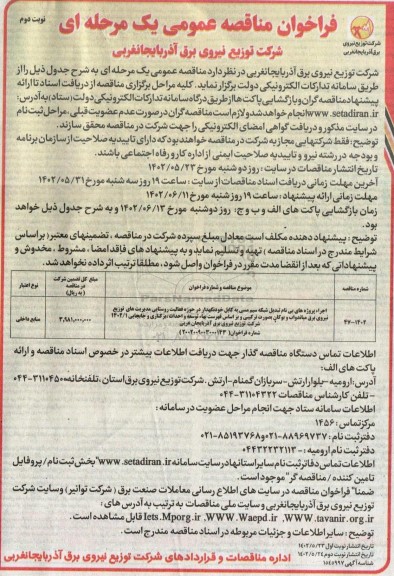 نوبت دوم
فراخوان مناقصه عمومی یک مرحله ای
شرکت توزیع نیروی برق آذربایجانغربی
شرکت توزیع نیروی
برق آذربایجانغربی
شرکت توزیع نیروی برق آذربایجانغربی در نظر دارد مناقصه عمومی یک مرحله ای به شرح جدول ذیل را از
طریق سامانه تدارکات الکترونیکی دولت برگزار نماید. کلیه مراحل برگزاری مناقصه از دریافت اسناد تا ارائه
پیشنهاد مناقصه گران و بازگشایی پاکت ها از طریق درگاه سامانه تدارکات الکترونیکی دولت (ستاد) به آدرس:
www.setadiran.ir انجام خواهد شد و لازم است مناقصه گران در صورت عدم عضویت قبلی، مراحل ثبت نام
در سایت مذکور و دریافت گواهی امضای الکترونیکی را جهت شرکت در مناقصه محقق سازند.
توضیح: فقط شرکتهایی مجاز به شرکت در مناقصه خواهند بود که دارای تاییدیه صلاحیت از سازمان برنامه
و بودجه در رشته نیرو و تاییدیه صلاحیت ایمنی از اداره کار و رفاه اجتماعی باشند.
تاریخ انتشار مناقصات در سایت: روز دوشنبه مورخ ۱۴۰۲/۰۵/۲۳
آخرین مهلت زمانی دریافت اسناد مناقصات از سایت: ساعت ۱۹ روز سه شنبه مورخ ۱۴۰۲/۰۵/۳۱
مهلت زمانی ارائه پیشنهاد: ساعت ۱۹ روز شنبه مورخ ۱۴۰۲/۰۶/۱۱
زمان بازگشایی پاکت های الف و ب و ج: روز دوشنبه مورخ ۱۴۰۲/۰۶/۱۳ و به شرح جدول ذیل خواهد
بود.
توضیح: پیشنهاد دهنده مکلف است معادل مبلغ سپرده شرکت در مناقصه، تضمینهای معتبر (بر اساس
شرایط مندرج در اسناد مناقصه) تهیه و تسلیم نماید و به پیشنهاد های فاقد امضا، مشروط، مخدوش و
پیشنهاداتی که بعد از انقضا مدت مقرر در فراخوان واصل شود، مطلقا ترتیب اثر داده نخواهد شد.
شماره مناقصه موضوع مناقصه و شماره فراخوان مبلغ کل تضمین شرکت در مناقصه (به ریال) نوع اعتبار
۱۴۰۲-۴۷ اجرای پروژه های بی نام تبدیل شبکه سیم مسی به کابل خودنگهدار در حوزه فعالیت روستایی مدیریت های توزیع
نیروی برق میاندوآب و بوکان بصورت ترکیبی و بر اساس فهرست بها، توسعه و احداث، برکناری و جابجایی ۱۴۰۲/۱
شرکت توزیع نیروی برق آذربایجان غربی
شماره فراخوان( ۲۰۰۲۰۰۹۰۰۳۰۰۰۱۴۳ ) ۳,۹۸۱,۰۰۰,۰۰۰ منابع داخلی
اطلاعات تماس دستگاه مناقصه گذار جهت دریافت اطلاعات بیشتر در خصوص اسناد مناقصه و ارائه
پاکت های الف:
آدرس: ارومیه-بلوار ارتش-سربازان گمنام-ارتش. شرکت توزیع نیروی برق استان، تلفنخانه ۳۱۱۰۴۵۰-۰۴۴
- تلفن کارشناس مناقصات ۳۱۱۰۴۳۲۲-۰۴۴
اطلاعات سامانه ستاد جهت انجام مراحل عضویت در سامانه:
مرکز تماس: ۱۴۵۶
دفتر ثبت نام: ۸۸۹۶۹۷۳۷-۰۲۱ و ۸۵۱۹۳۷۶۸-۰۲۱
دفتر ثبت نام ارومیه: ۰۴۴۳۲۲۳۲۱۱۳
اطلاعات تماس دفاتر ثبت نام سایر استانها در سایت سامانه www.setadiran.ir "بخش ثبت نام / پروفایل
تامین کننده / مناقصه گر" موجود است.
ضمنا" فراخوان مناقصه در سایت های اطلاع رسانی معاملات صنعت برق ( شرکت توانیر) وسایت شرکت
توزیع نیروی برق آذربایجانغربی و سایت ملی مناقصات به ترتیب به آدرس های:
WWW.tavanir.org.ir، WWW.Waepd.ir، Iets.Mporg.ir قابل مشاهده است.
توضیح: سایر اطلاعات و جزئیات مربوطه در اسناد مناقصه مندرج است.
تاریخ انتشار نوبت اول ۱۴۰۲/۵/۲۳
تاریخ انتشار نوبت دوم ۱۴۰۲/۵/۲۴
شناسه آگهی ۱۵۴۵۹۹۷
اداره مناقصات و قراردادهای شرکت توزیع نیروی برق آذربایجانغربی